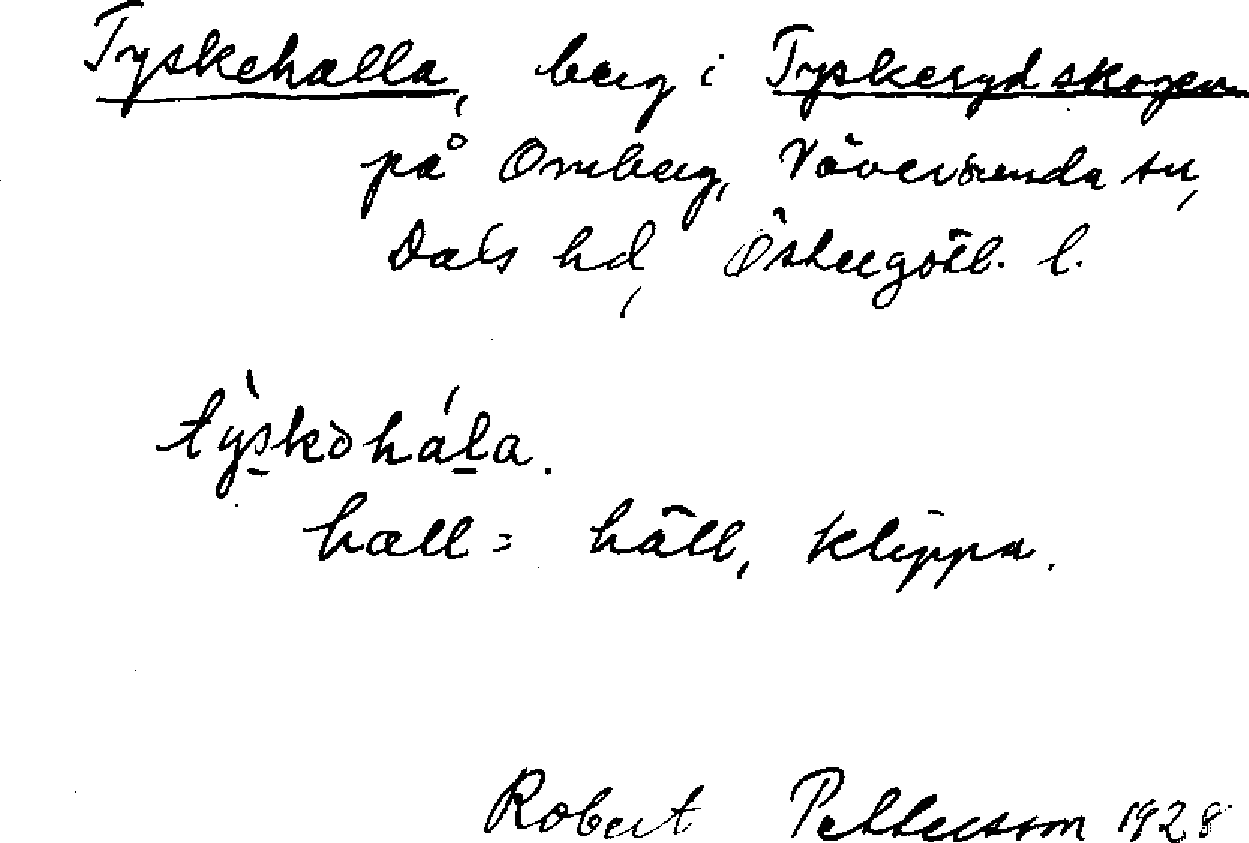 Tyskehalla, berg i Tyskerydskogen
på Omberg, Väversunda sn,
Dals hd, Östergötl. l.
týskəhála.
hall = häll, klippa.
Robert Pettersson 1928